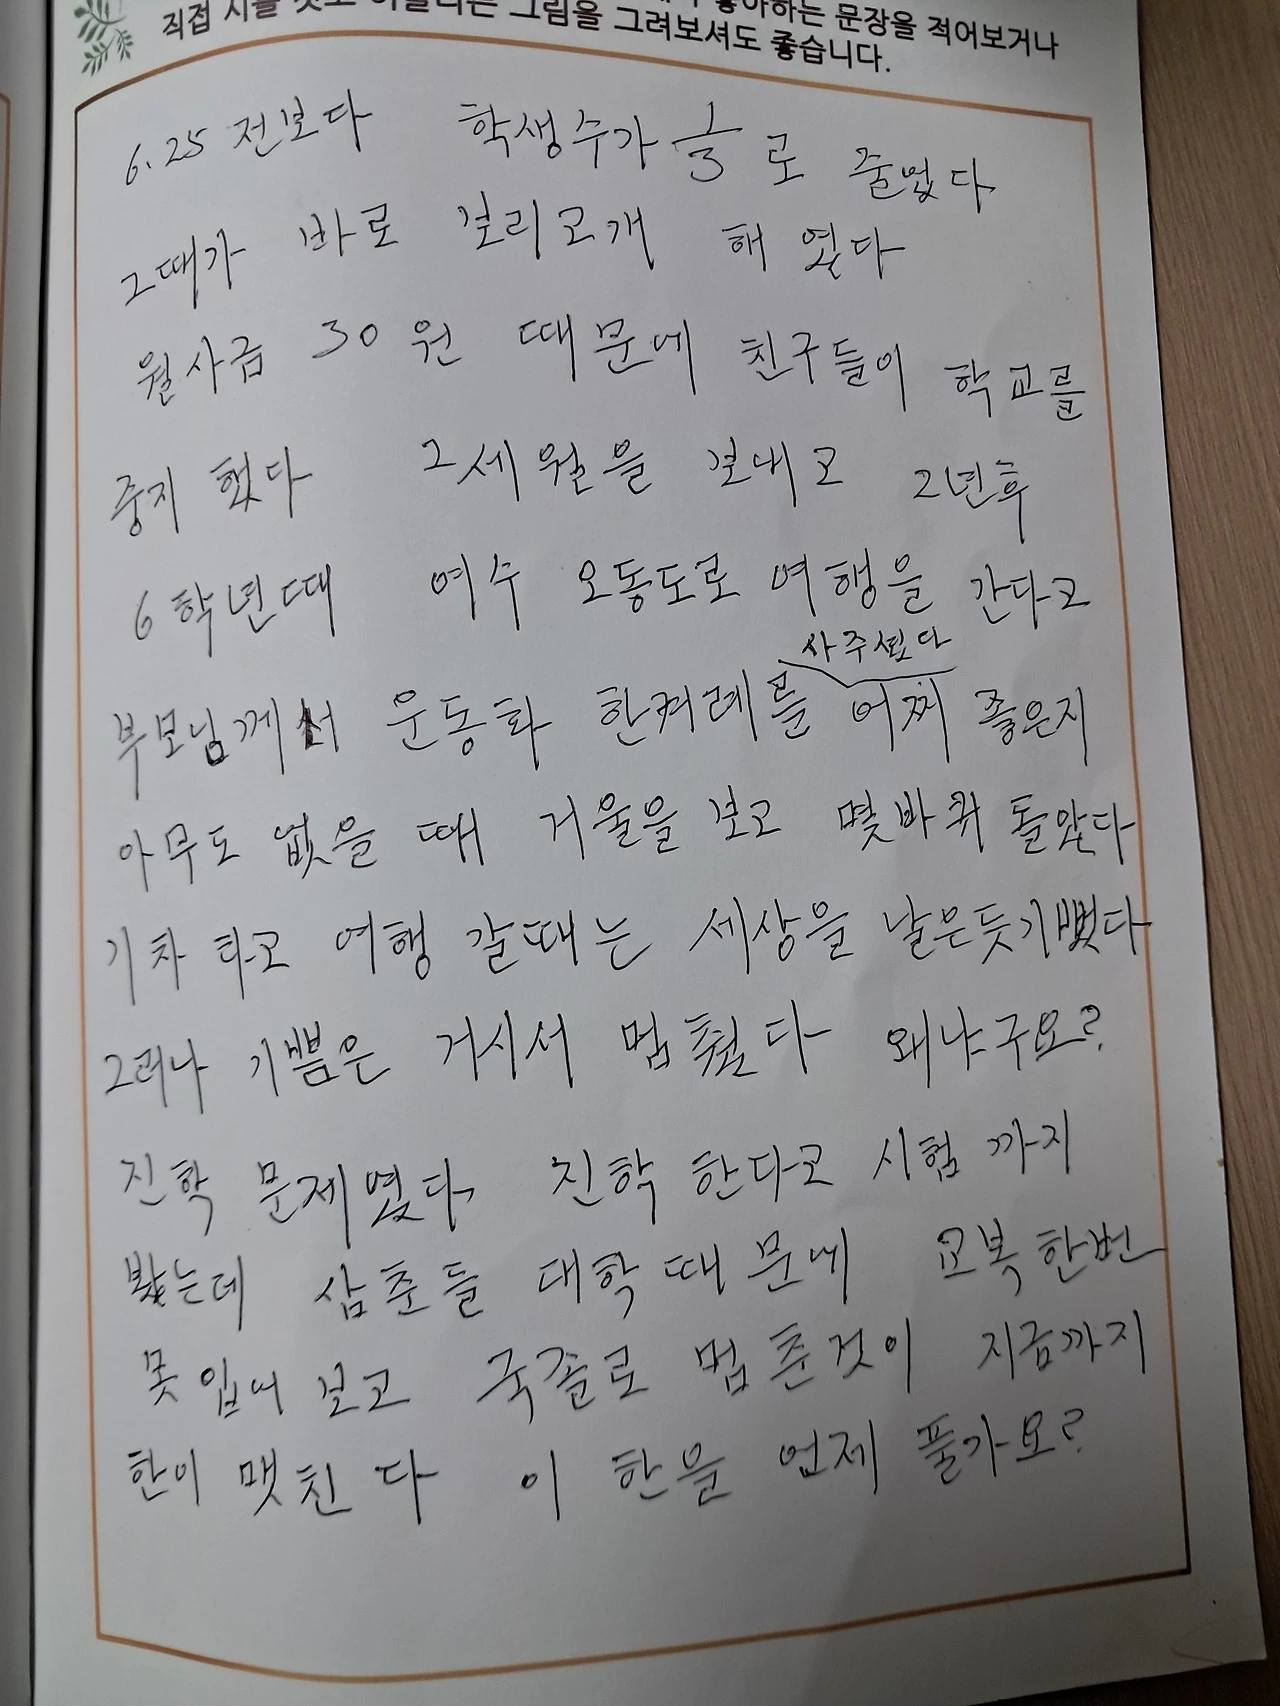 좋아하는 문장을 적어보거나
직접 시를 짓고 어울리는 그림을 그려보셔도 좋습니다.
6.25 전보다 학생수가 1/3로 줄었다.
그때가 바로 보리고개 해 였다
월사금 30원 때문에 친구들이 학교를
중지 했다 그세월을 보내고 2년후
6학년때 여수 오동도로 여행을 간다고
사주셨다
부모님께서 운동화 한켜례를 어찌 좋은지
아무도 없을 때 거울을 보고 몇바퀴 돌았다
기차 타고 여행 갈때는 세상을 날은듯기뻤다
그러나 기쁨은 거시서 멈췄다 왜냐구요?
진학 문제였다, 진학 한다고 시험 까지
봤는데 삼춘들 대학 때문에 교복 한번
못 입어 보고 국졸로 멈춘것이 지금까지
한이 맺친다 이 한을 언제 풀가요?